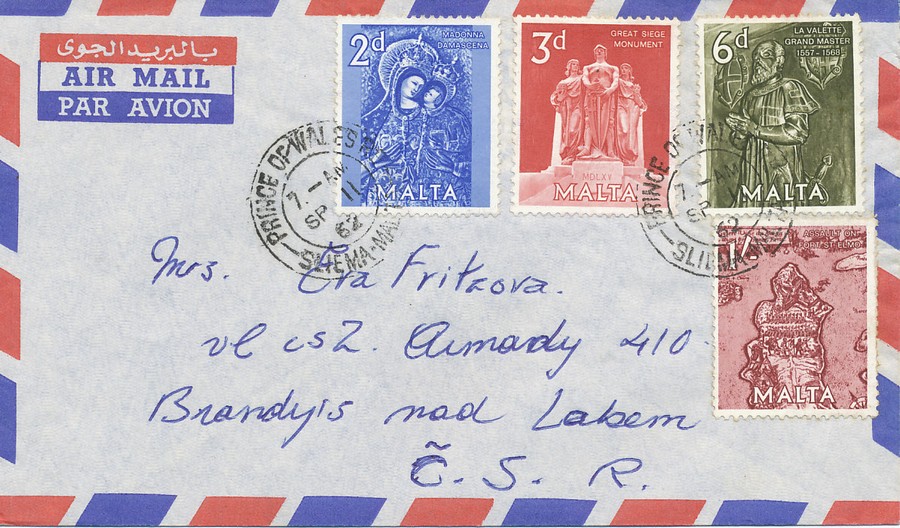 بالبريد الجوى
AIR MAIL
PAR AVION
2d
MADONNA
DAMASCENA
MALTA
3d
GREAT SIEGE
MONUMENT
MDLXV
MALTA
6d
LA VALETTE
GRAND MASTER
1557-1568
MALTA
1/-
ASSAULT ON
FORT ST ELMO
MALTA
PRINCE OF WALES
7-AM
SP 11
62
SLIEMA-MALTA
PRINCE OF WALES
7-AM
SP
62
SLIEMA
Mrs. Eva Fritzova.
ul csl. Armady 410
Brandyis nad Labem
Č. S. R.